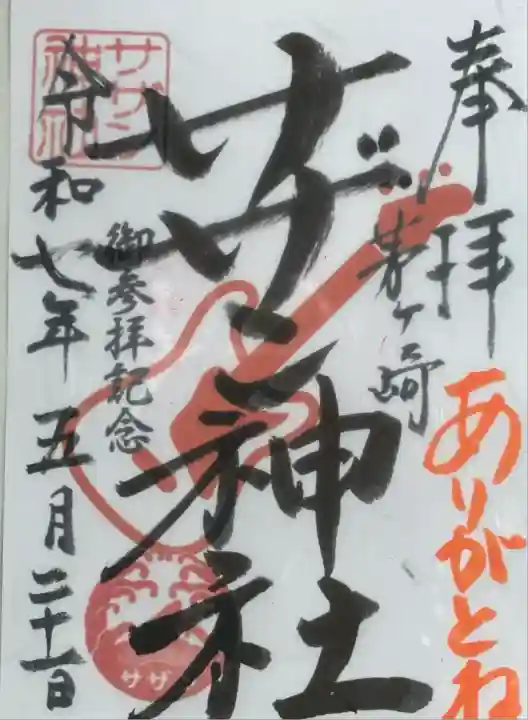 奉拝
ありがとね
茅ヶ崎
サザン神社
御参拝記念
令和七年五月二十一日
サザン
神社
サザ